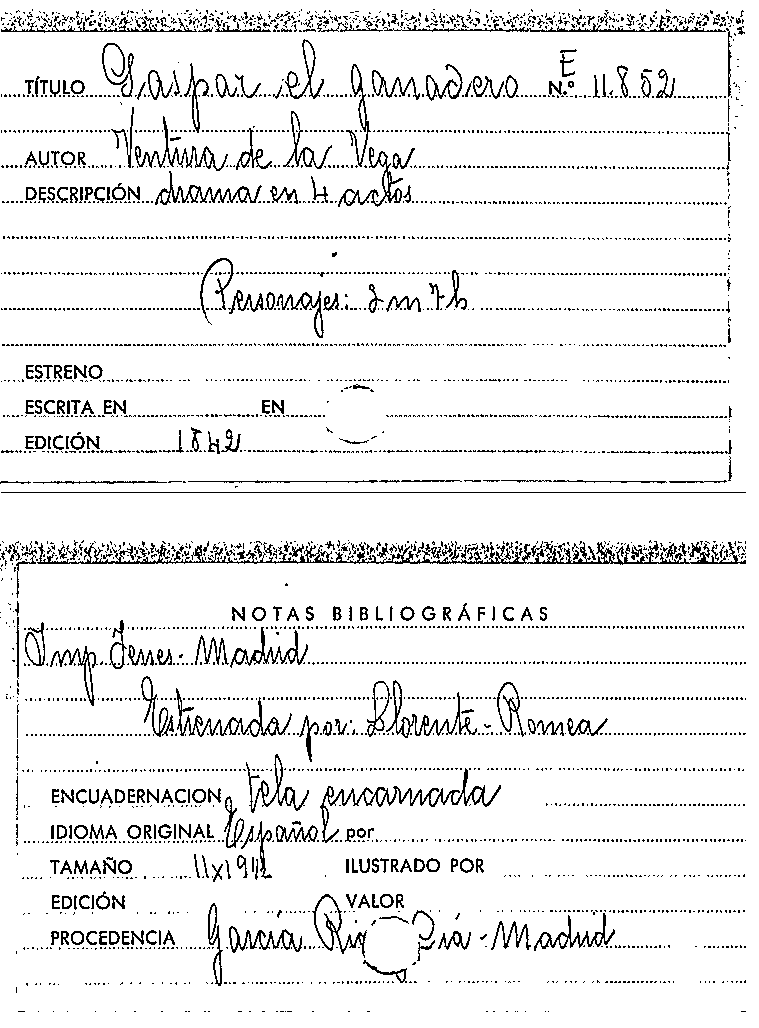 E
TÍTULO Gaspar el ganadero N.º 11.852
AUTOR Ventura de la Vega
DESCRIPCIÓN drama en 4 actos
Personajes: 2 m 7 h
ESTRENO
ESCRITA EN EN
EDICIÓN 1842
NOTAS BIBLIOGRÁFICAS
Imp. Madrid
Estrenada por: Llorente - Romea
ENCUADERNACION tela encarnada
IDIOMA ORIGINAL Español por
TAMAÑO ILUSTRADO POR
EDICIÓN VALOR
PROCEDENCIA García - Madrid